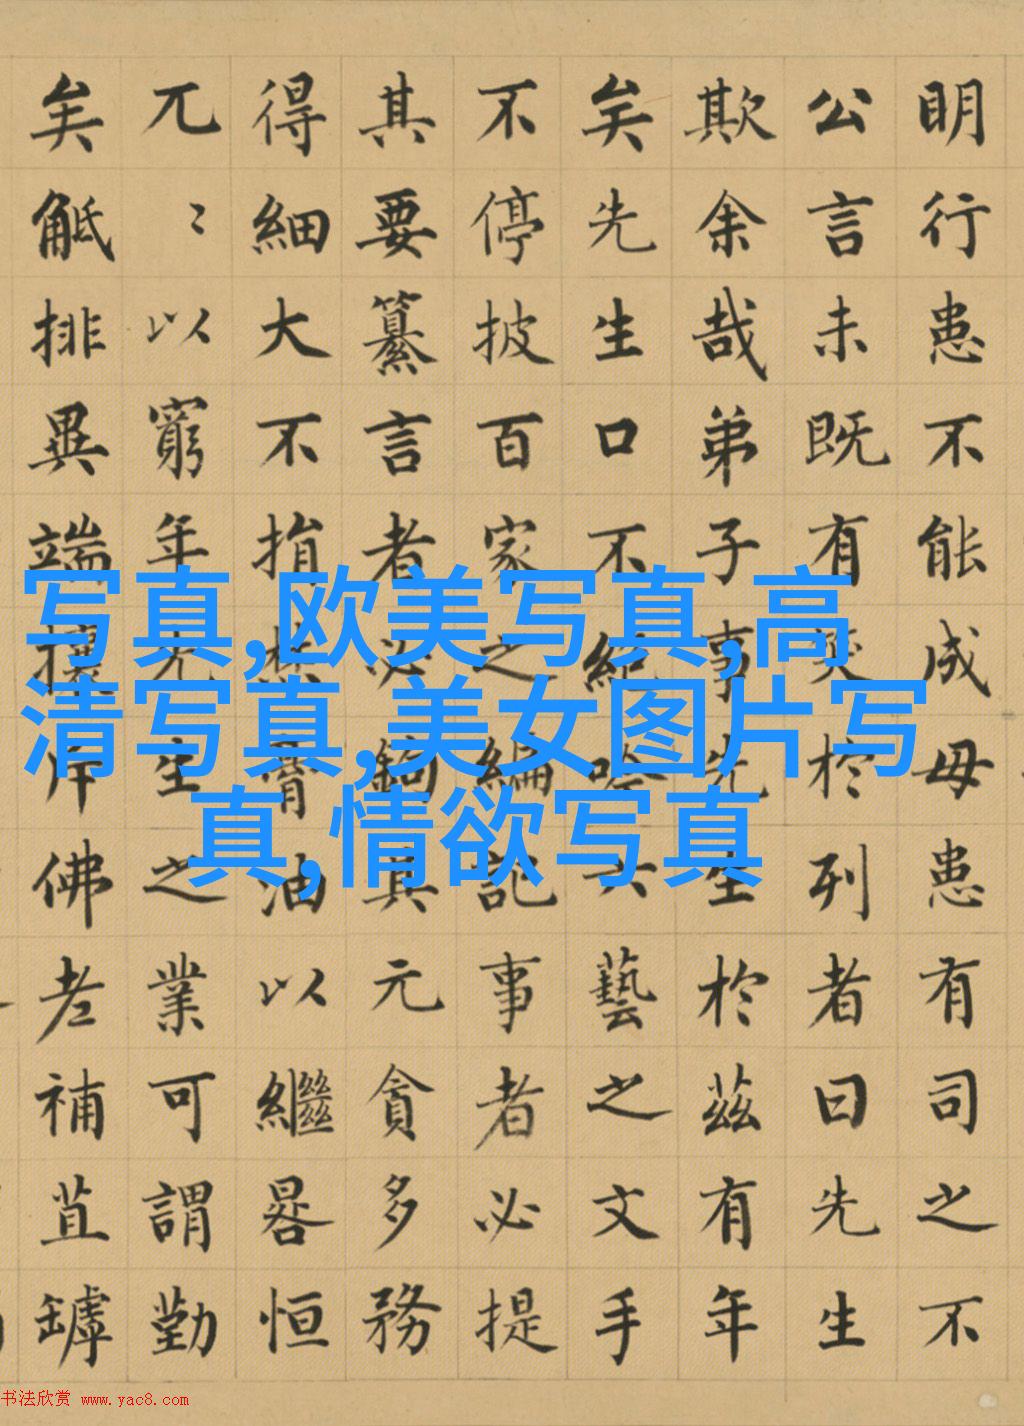 明行患不能成毋患有司之不
公言未既有笑於列者曰先生
欺余哉弟子事先生於茲有年
矣先生口不絕吟六藝之文手
不停披百家之編記事者必提
其要纂言者必鉤其元貪多務
得細大不捐焚膏油以繼晷恒
兀〻以窮年先生之業可謂勤
矣觝排異端攘斥佛老補苴罅
写真,欧美写真,高
清写真,美女图片写
真,情欲写真
书法欣赏 www.yac8.com